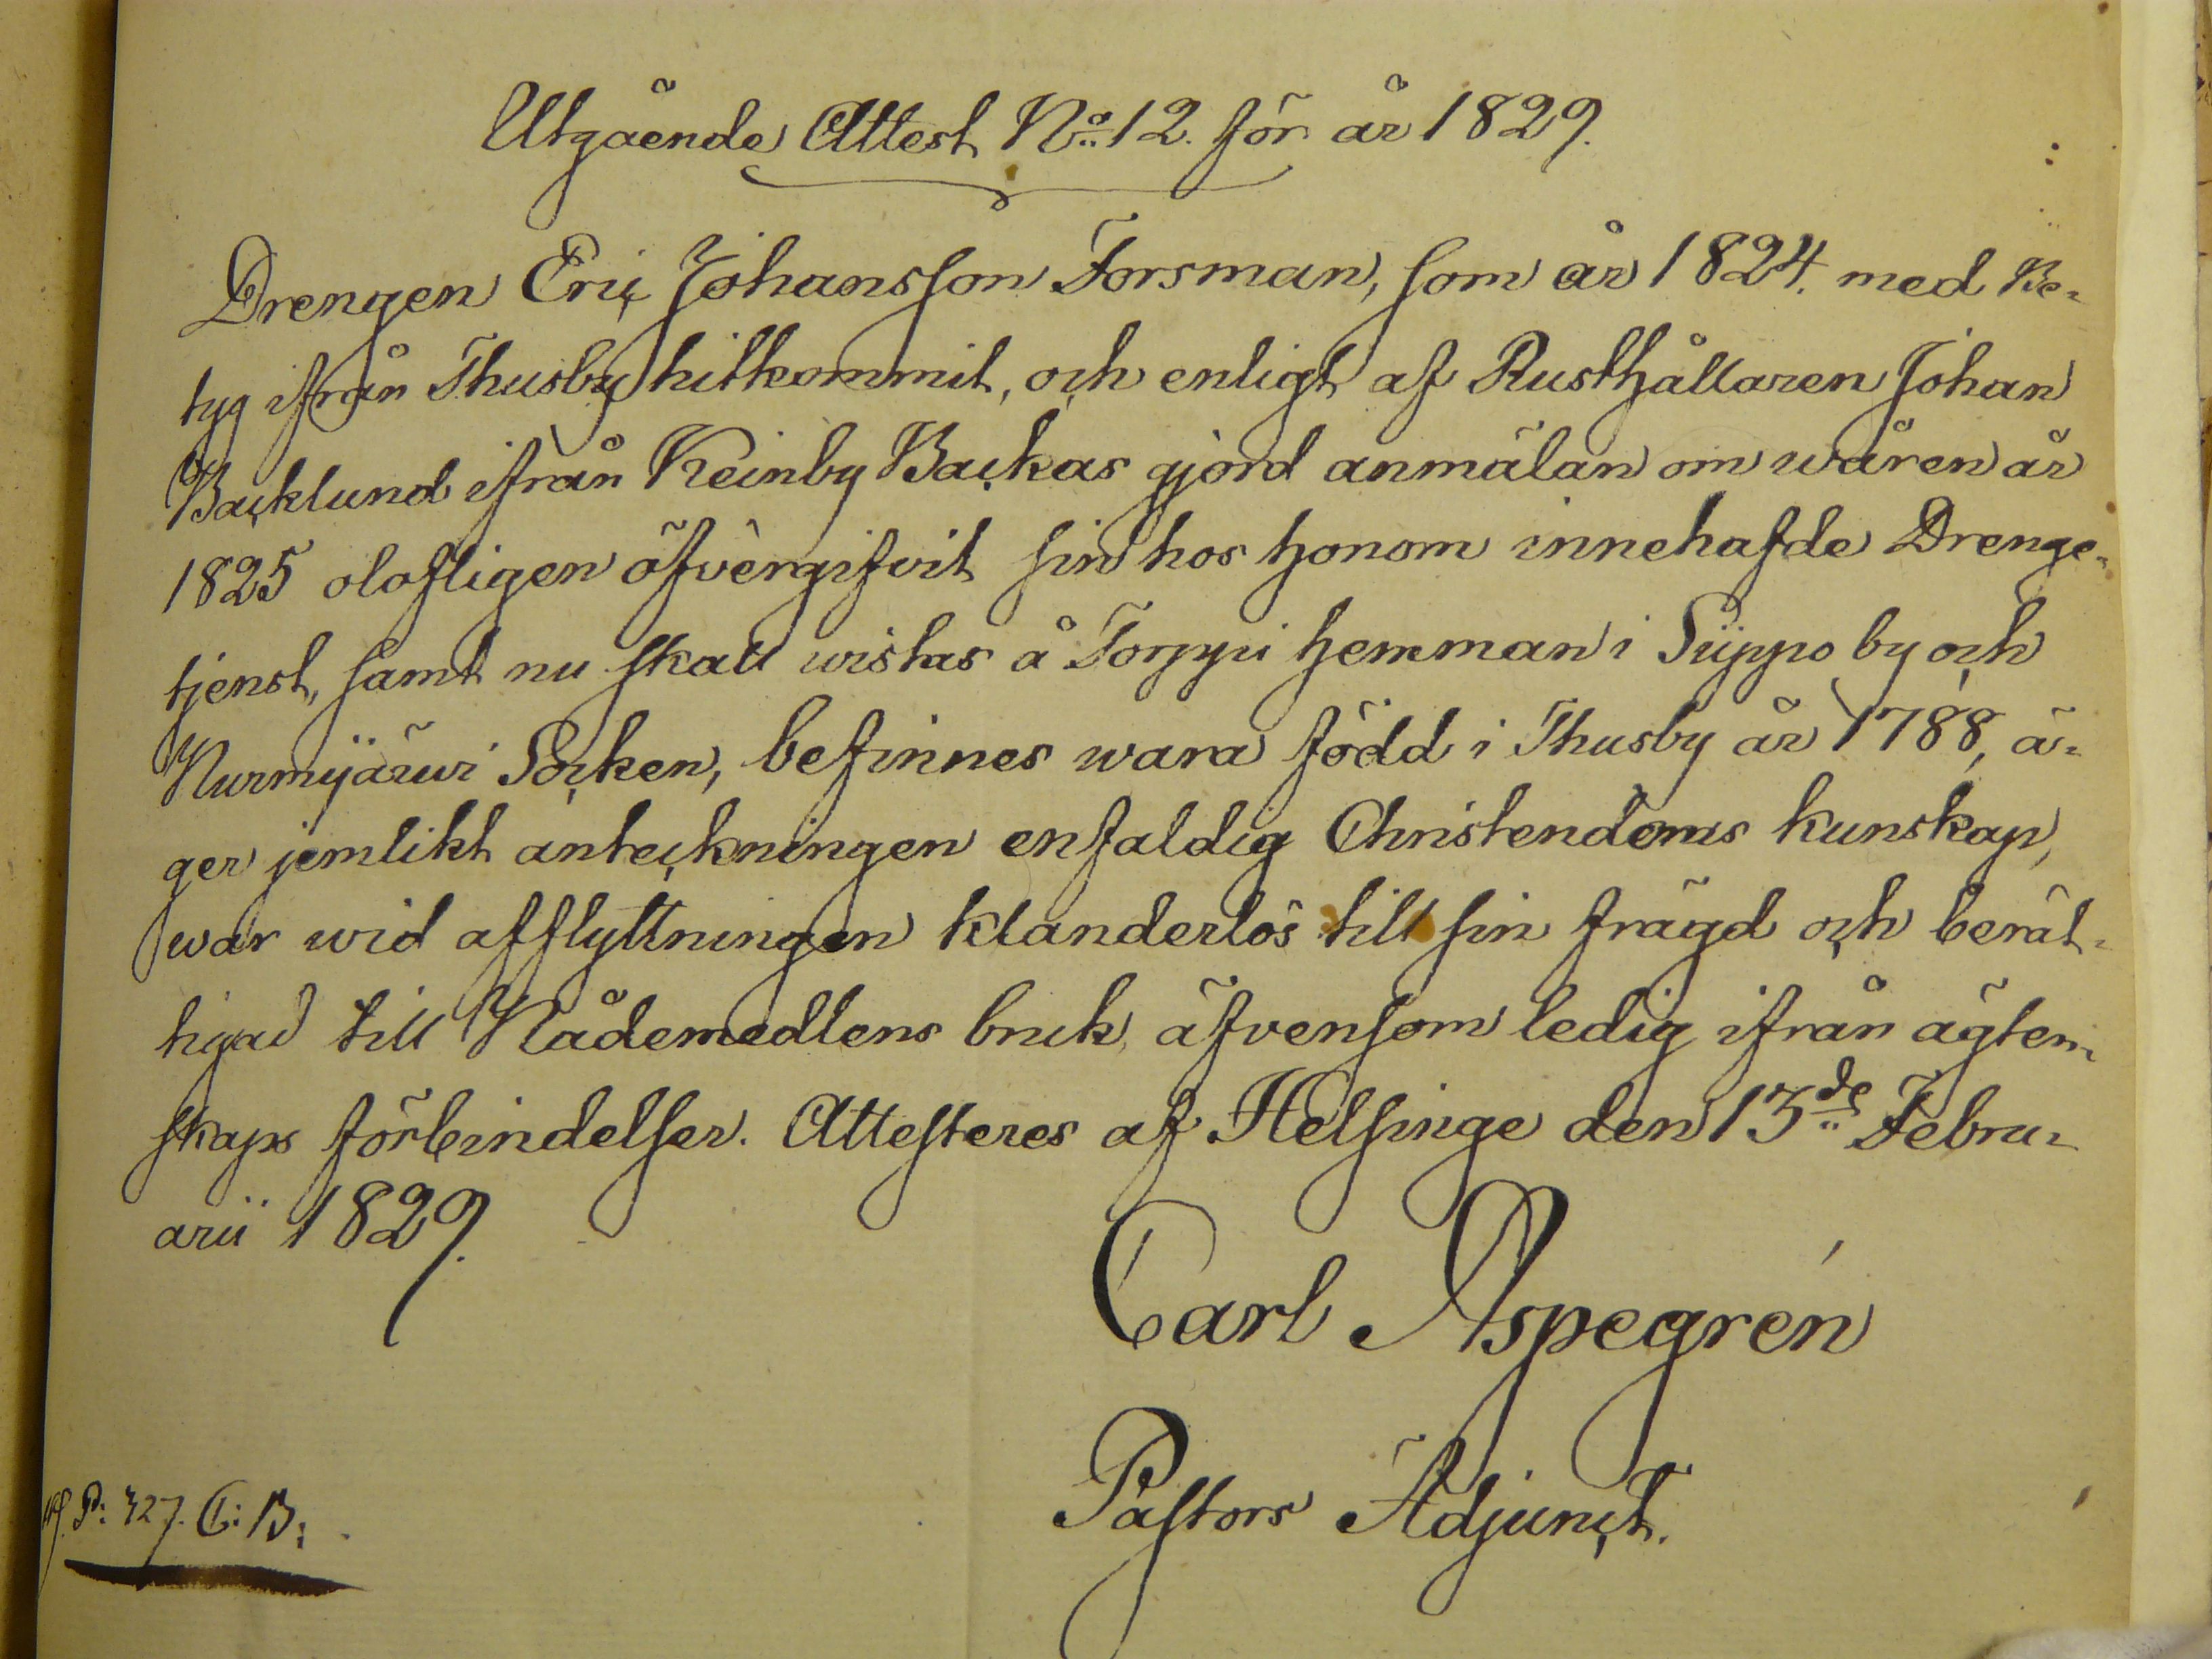 Utgående Attest No 12. för år 1829.
Drengen Eric Johansson Forsman, som år 1824. med Be-
tyg ifrån Thusby hitkommit, och enligt af Rusthållaren Johan
Backlund ifrån Keinby Backas gjord anmälan om wåren år
1825 olofligen öfvergifvit sin hos honom innehafde Drenge-
tjenst, samt nu skall wistas å Torppi hemman i Süppo by och
Nurmijärwi Socken, befinnes wara född i Thusby år 1788, ä-
ger jemlikt anteckningen enfaldig Christendoms kunskap,
war wid afflyttningen klanderlös till sin frägd och berät-
tigad till Nådemedlens bruk, äfvensom ledig ifrån ägten-
skaps förbindelser. Attesteres af Helsinge den 13de Febru-
arii 1829.
Carl Aspegrén
Pastors Adjunct.
P: 327. C: B: